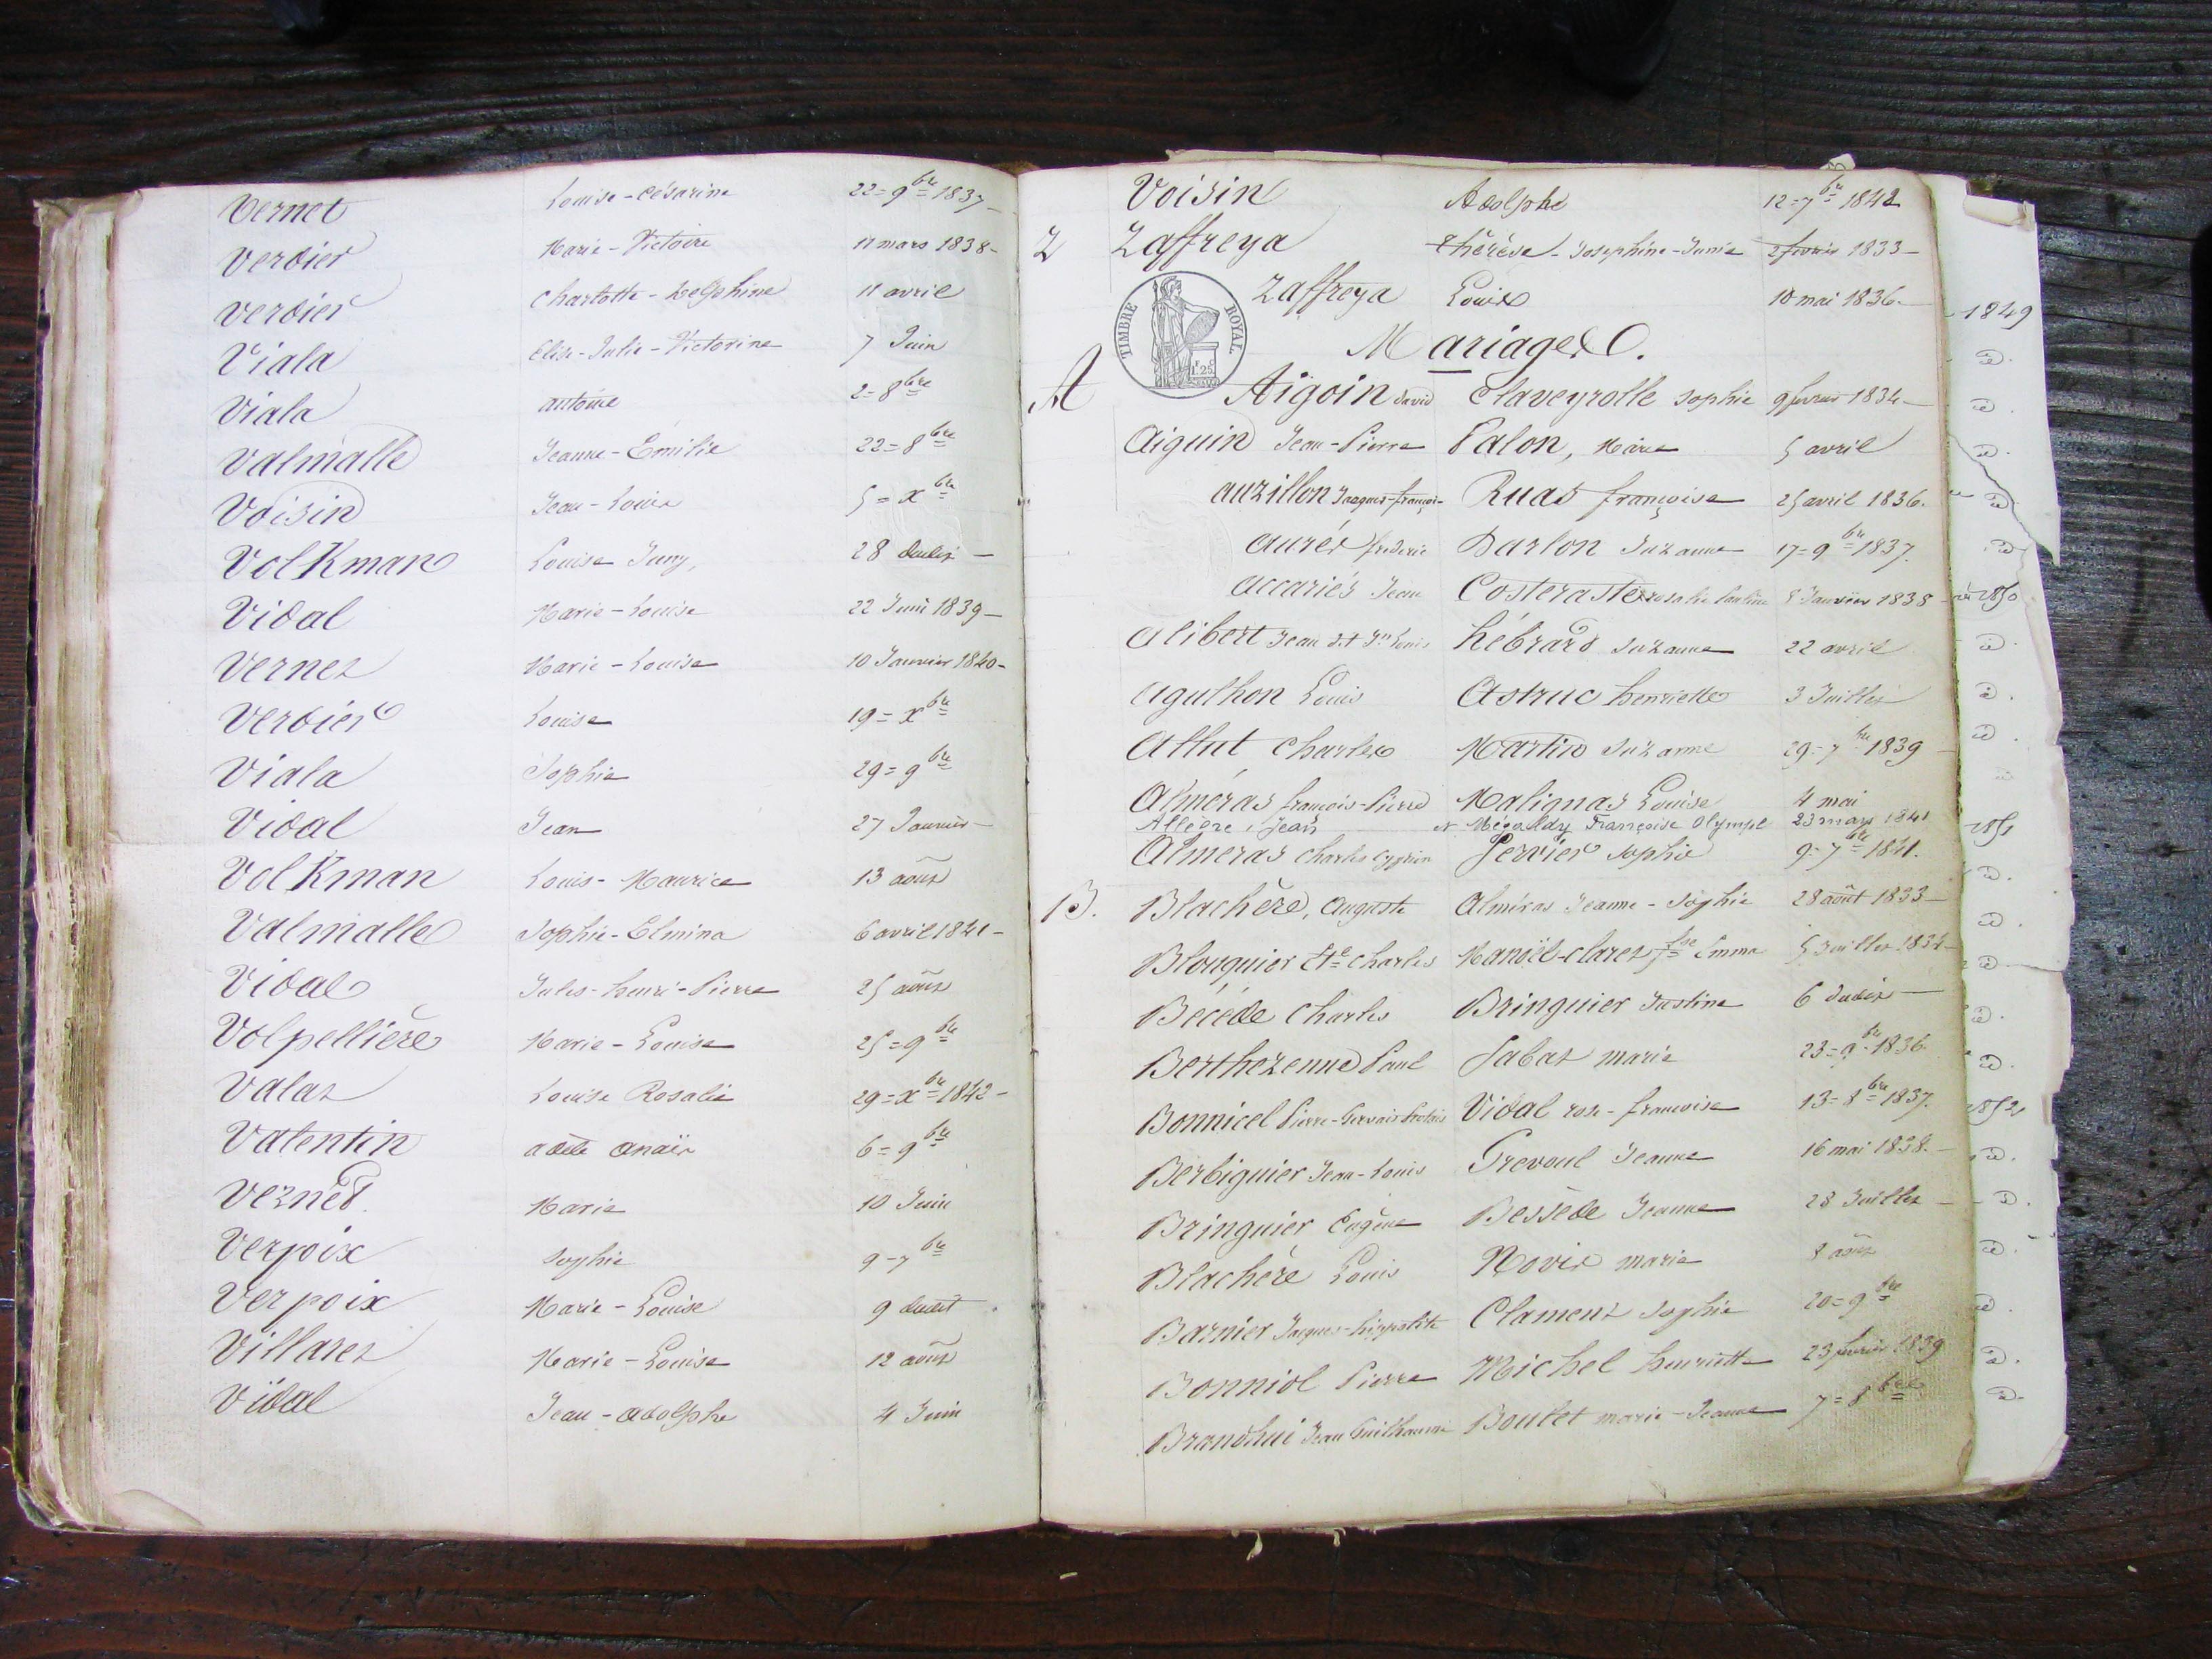 Vernet Louise-Césarine 22=9bre 1837
Verdier Marie-Victoire 11 mars 1838
Verdier Charlotte-Delphine 11 avril
Viala Elise-Julie-Victorine 7 Juin
Viala antoine 2=8bre
Valmalle Jeanne-Emilie 22=8bre
Voisin Jean-Louis 5=xbre
VolKman Louise Juny, 28
Vidal Marie-Louise 22 Juin 1839
Vernet Marie-Louise 10 Janvier 1840
Verdier Louise 19=xbre
Viala Sophie 29=9bre
Vidal Jean 27 Janvier
VolKman Louis-Maurice 13 août
Valmalle Sophie-Elmina 6 avril 1841
Vidal Jules-henri-Pierre 25 août
Volpellière Marie-Louise 25=9bre
Valat Louise Rosalie 29=xbre 1842
Valentin adèle anaïs 6=9bre
Veznet Marie 10 Juin
Verpoix Sophie 9-7bre
Verpoix Marie-Louise 9 dudit
Villaret Marie-Louise 12 août
Vidal Jean-adolphe 4 Juin
Voisin Adolphe 12=7bre 1842
Z Zaffreya Thérèse-Josephine-Junie 2 février 1833
Zaffreya Louis 10 mai 1836.
TIMBRE ROYAL
1f 25
Mariages.
A Aigoin david Claveyrolle sophie 9 février 1834
Aiguin Jean-Pierre Falon, Marie 5 avril
auzillon Jacques-françois Ruas françoise 25 avril 1836.
aurés frederic Darlon Suzanne 17=9bre 1837.
accariés Jean Costeraste rosalie Pauline 8 Janvier 1838
alibert Jean dit Jn Louis hébrard Suzanne 22 avril
agulhon Louis Astruc henriette 3 Juillet
Allut charles Martin Suzanne 29=7bre 1839
Alméras françois-Pierre Malignas Louise 4 mai
Allègre, Jean et Mégaldy Françoise Olympe 23 mars 1841
Alméras charles Cyprien Servier Sophie 9=7bre 1841.
B. Blachère, auguste Alméras Jeanne-Sophie 28 août 1833
Blouquier Ate Charles Manoël-claret fse Emma 5 Juillet 1834
Bécéde Charles Bringuier Justine 6 Judit
Berthezenne Paul Sabat marie 23=9bre 1836.
Bonnicel Pierre-Gervais Protais Vidal rose-françoise 13=8bre 1837.
Berbiguier Jean-Louis Grevoul Jeanne 16 mai 1838.
Bringuier Eugène Bessède Jeanne 28 Juillet
Blachère Louis Novis marie 8 août
Barnier Jacques-hippolite Clament Sophie 20=9bre
Bonniol Pierre Michel henriette 23 février 1839
Brandhui Jean Guilhaume Boulet marie-Jeanne 7=8bre
1849
1850
1851
1852